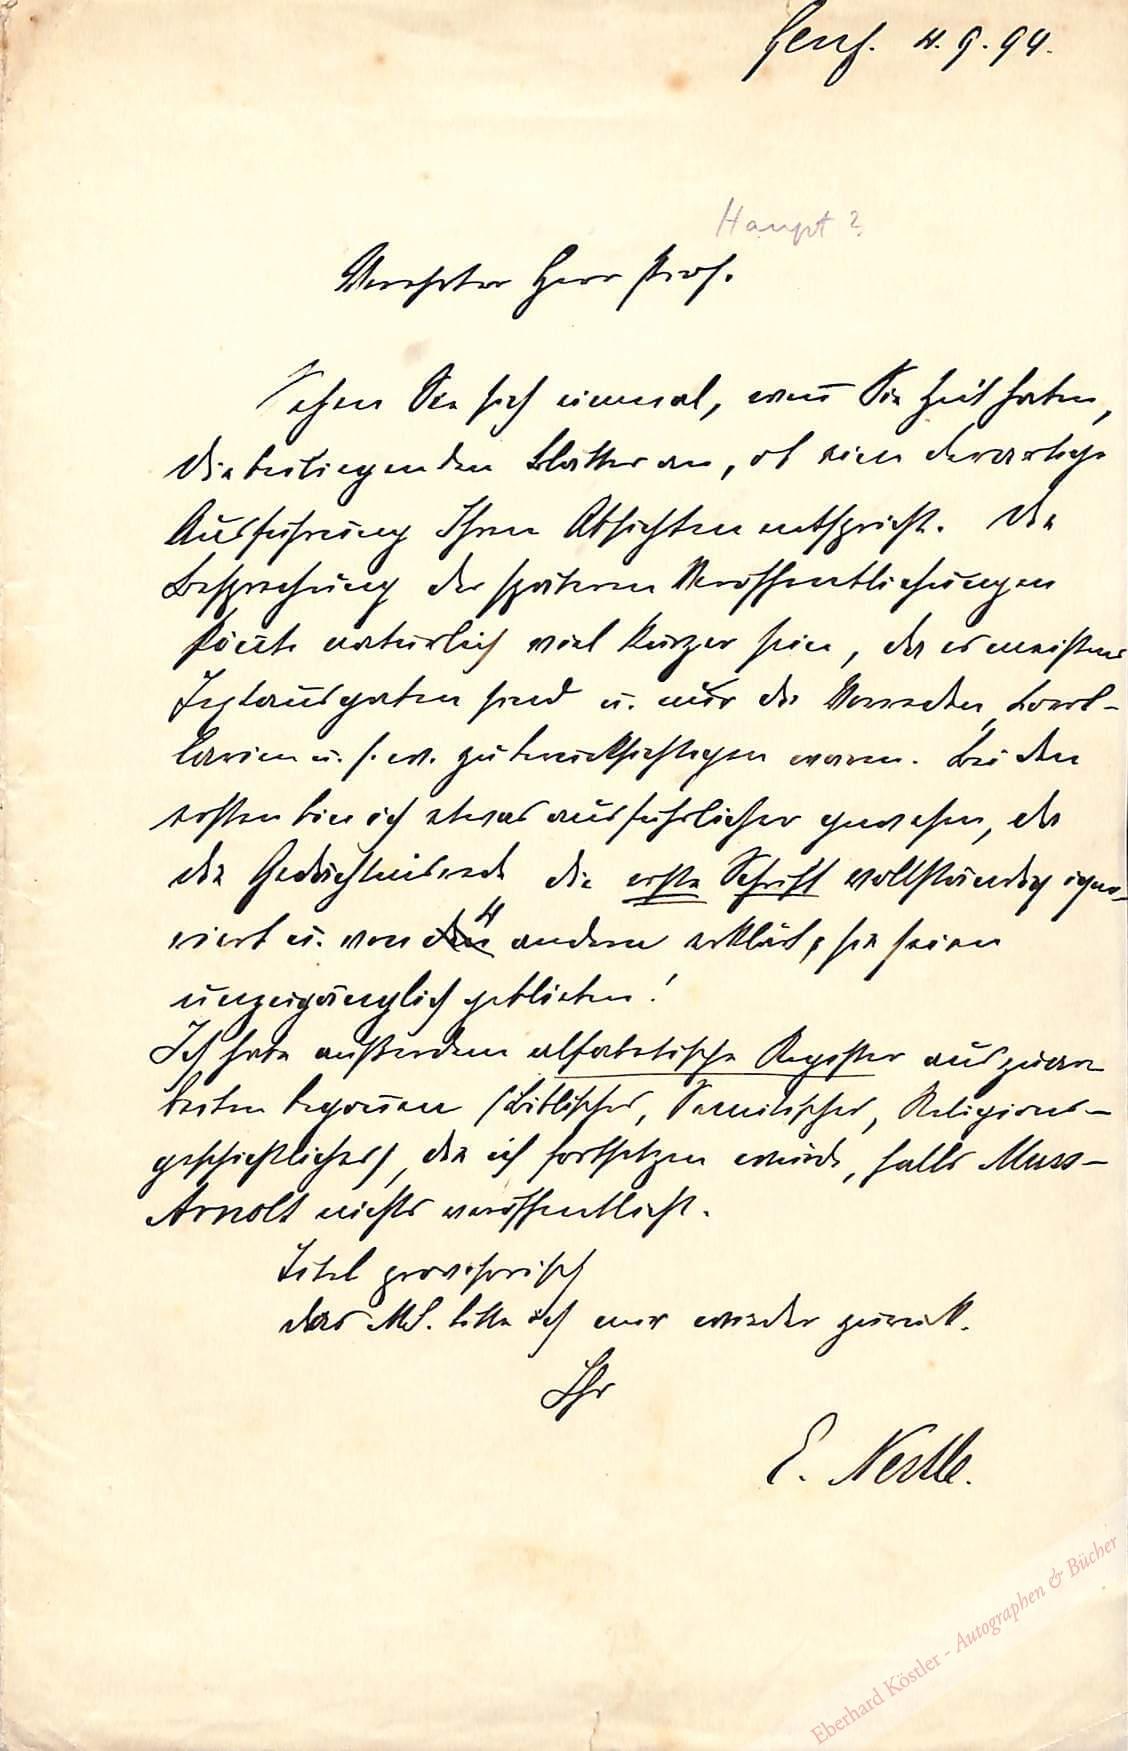 Genf. 4. 9. 94.
Haupt?
Verehrter Herr Prof.
Sehen Sie sich einmal, wenn Sie Zeit haben,
die beiliegenden Blätter an, ob eine derartige
Ausführung Ihren Absichten entspricht. Die
Besprechung der späteren Veröffentlichungen
könnte natürlich viel kürzer sein, da es meistens
Textausgaben sind u. nur die Vorreden,
u. s. w. zu berücksichtigen waren. Bei den
ersten bin ich etwas ausführlicher gewesen, da
die Gedächtnisrede die erste Schrift vollständig igno-
riert u. von 4 andern erklärt, sie seien
unzugänglich geblieben!
Ich habe außerdem alfabetische Register auszuar-
beiten begonnen (Biblisches, Semitisches, Religions-
geschichtliches), die ich fortsetzen würde, falls Muss-
Arnolt nichts veröffentlicht.
Titel provisorisch
das MS. bitte ich mir wieder zurück.
Ihr
E. Nestle.
Eberhard Köstler - Autographen & Bücher